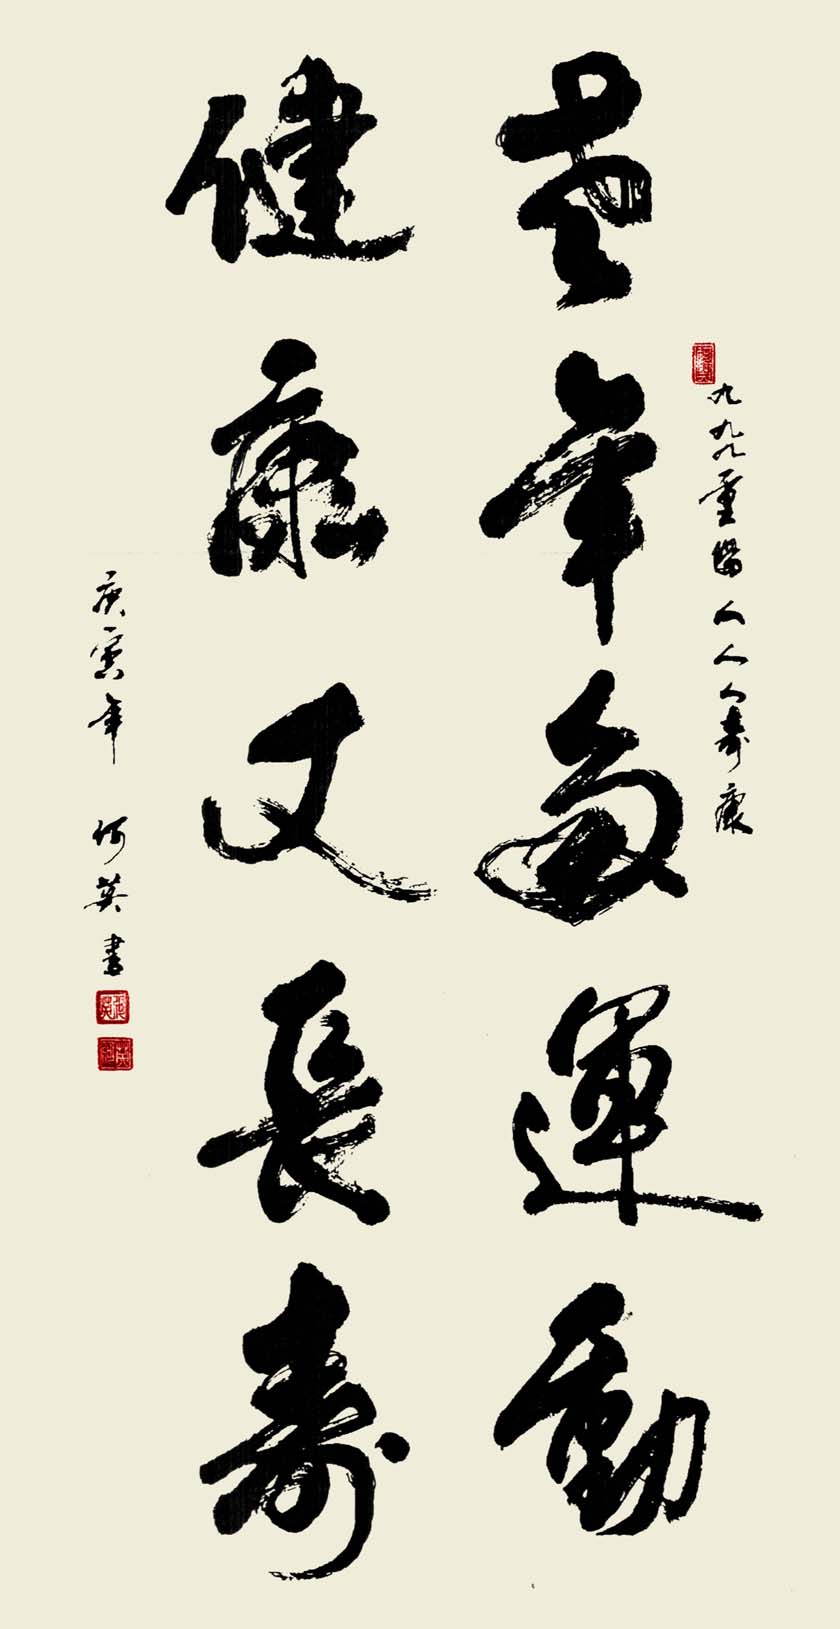 九九九重陽人人人壽康
老年多運動
健康又長壽
庚寅年 何英書